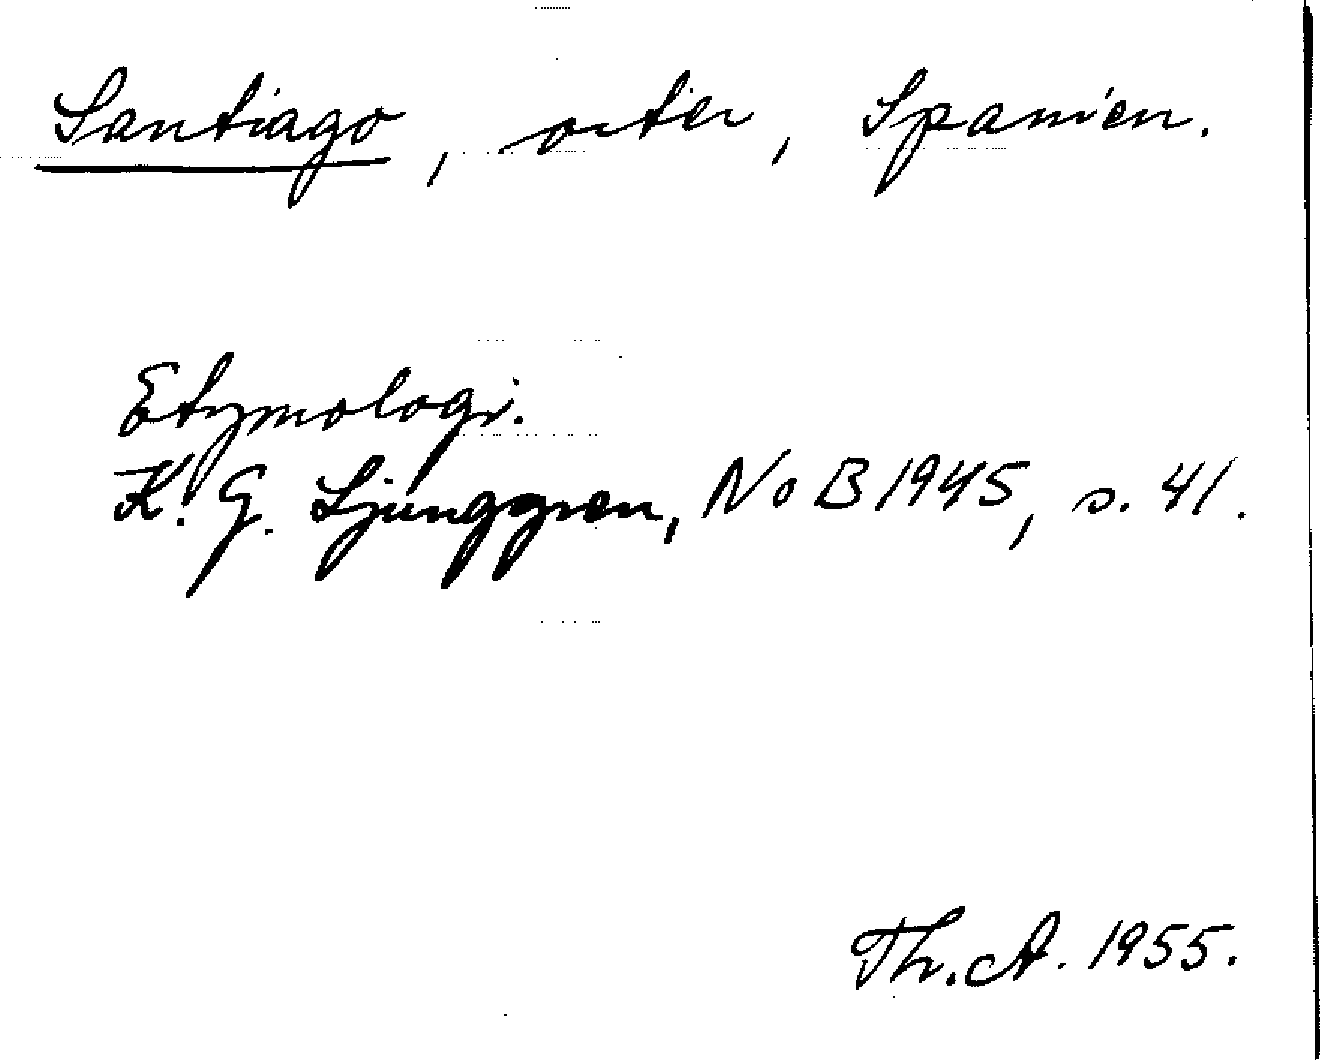 Santiago, orter, Spanien.
Etymologi.
K. G. Ljunggren, NoB 1945, s. 41.
Th. A. 1955.